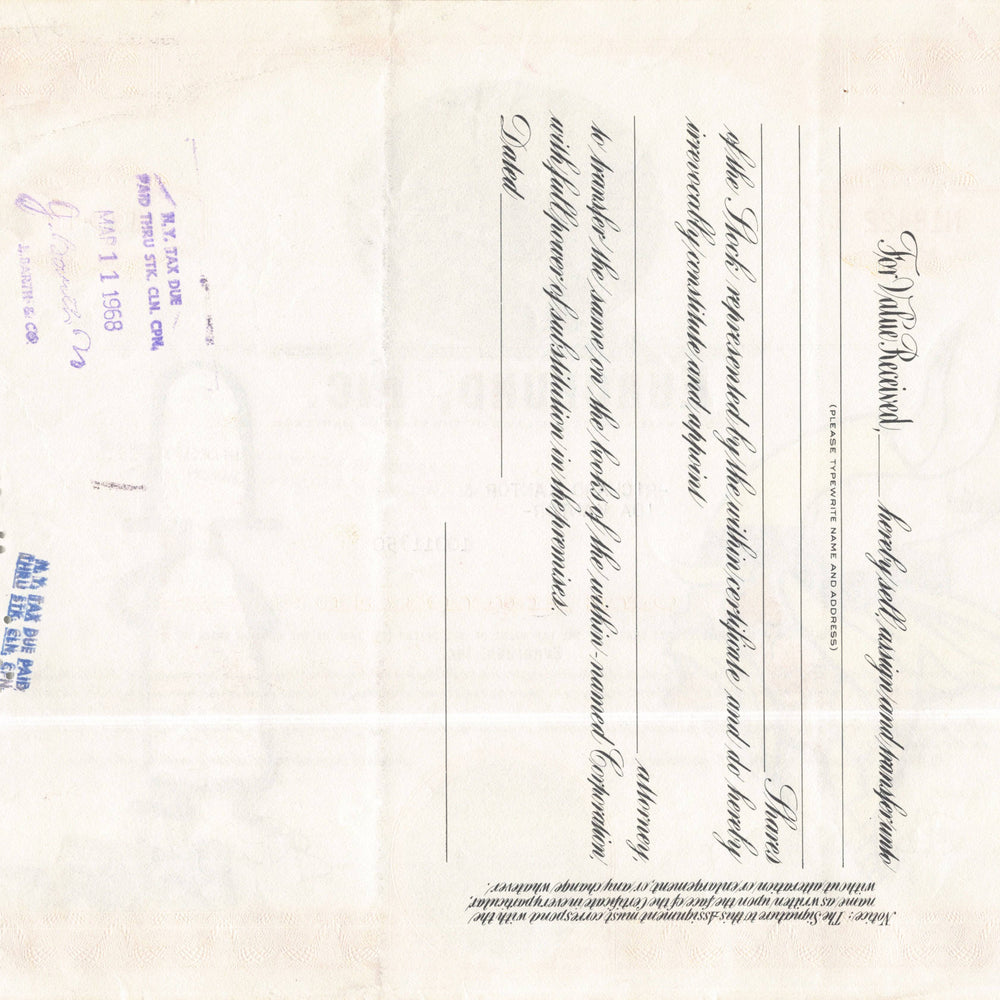 For Value Received, hereby sell, assign and transfer unto
(PLEASE TYPEWRITE NAME AND ADDRESS)
Shares
of the Stock represented by the within certificate and do hereby
irrevocably constitute and appoint
attorney,
to transfer the same on the books of the within-named Corporation,
with full power of substitution in the premises.
Dated
Notice: The Signature to this Assignment must correspond with the
name as written upon the face of the Certificate in every particular,
without alteration or enlargement, or any change whatever.
N.Y. TAX DUE
PAID THRU STK. CLN. CPN.
MAR 11 1968
J. BARTH & CO.
N.Y. TAX DUE PAID
THRU STK. CLN. CPN.